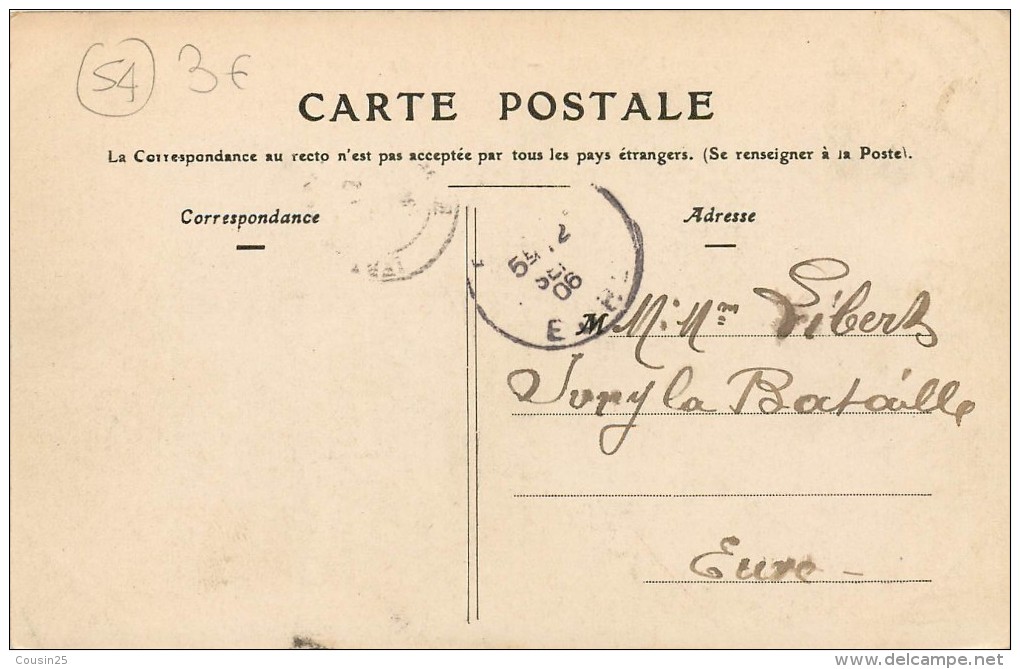 54 3€
CARTE POSTALE
La Correspondance au recto n'est pas acceptée par tous les pays étrangers. (Se renseigner à la Poste).
Correspondance
Adresse
06
E
M M. Mme Libert
Ivry la Bataille
Eure -
Cousin25
www.delcampe.net